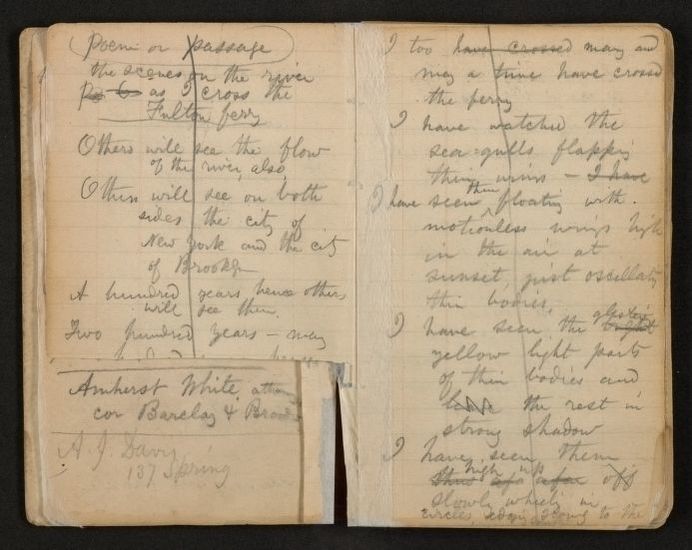 Poem or passage
the scenes on the river
as I cross the
Fulton ferry
Others will see the flow
of the river, also,
Others will see, on both
sides the city of
New York and the city
of Brooklyn
A hundred years hence others
will see them,
Two hundred years – many
Amherst White,
cor Barclay & Broad
A. J. Davis
137 Spring
I too have crossed many and
many a time have crossed
the ferry
I have watched the
sea-gulls flapping
their wings – I have
I have seen them floating with
motionless wings high
in the air at
sunset, just oscillating
their bodies,
I have seen the glistening bright
yellow light parts
of their bodies and
the rest in
strong shadow
I have seen them
high up afar off
slowly wheeling in
circles edging along to the